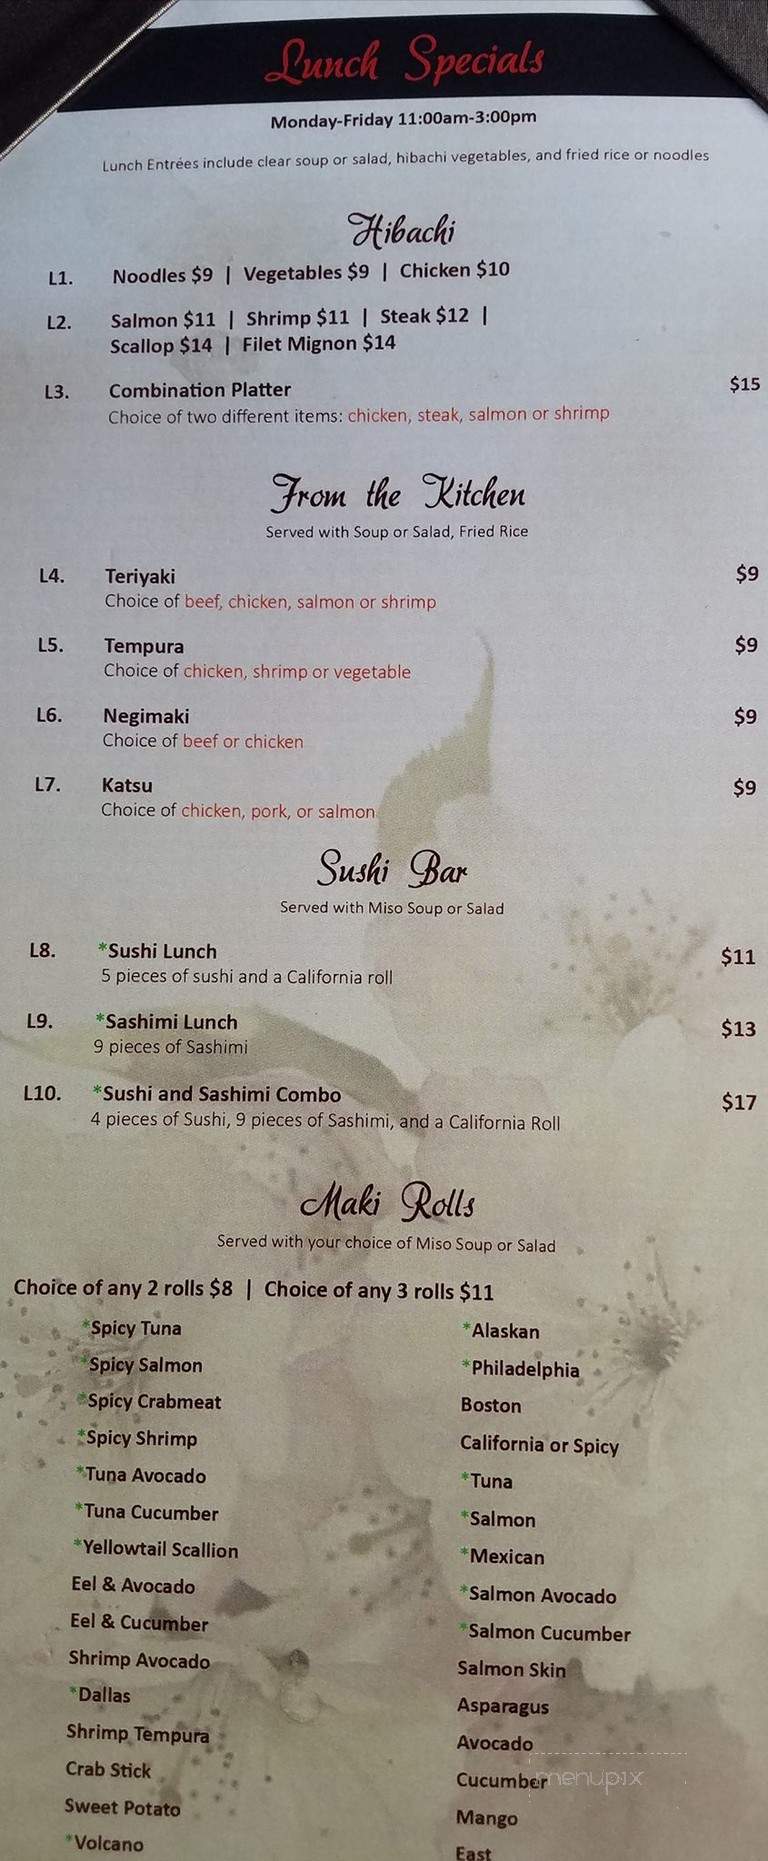 Lunch Specials
Monday-Friday 11:00am-3:00pm
Lunch Entrées include clear soup or salad, hibachi vegetables, and fried rice or noodles
Hibachi
L1. Noodles $9 | Vegetables $9 | Chicken $10
L2. Salmon $11 | Shrimp $11 | Steak $12 |
Scallop $14 | Filet Mignon $14
L3. Combination Platter $15
Choice of two different items: chicken, steak, salmon or shrimp
From the Kitchen
Served with Soup or Salad, Fried Rice
L4. Teriyaki $9
Choice of beef, chicken, salmon or shrimp
L5. Tempura $9
Choice of chicken, shrimp or vegetable
L6. Negimaki $9
Choice of beef or chicken
L7. Katsu $9
Choice of chicken, pork, or salmon
Sushi Bar
Served with Miso Soup or Salad
L8. *Sushi Lunch $11
5 pieces of sushi and a California roll
L9. *Sashimi Lunch $13
9 pieces of Sashimi
L10. *Sushi and Sashimi Combo $17
4 pieces of Sushi, 9 pieces of Sashimi, and a California Roll
Maki Rolls
Served with your choice of Miso Soup or Salad
Choice of any 2 rolls $8 | Choice of any 3 rolls $11
*Spicy Tuna
*Spicy Salmon
*Spicy Crabmeat
*Spicy Shrimp
*Tuna Avocado
*Tuna Cucumber
*Yellowtail Scallion
Eel & Avocado
Eel & Cucumber
Shrimp Avocado
*Dallas
Shrimp Tempura
Crab Stick
Sweet Potato
*Volcano
*Alaskan
*Philadelphia
Boston
California or Spicy
*Tuna
*Salmon
*Mexican
*Salmon Avocado
*Salmon Cucumber
Salmon Skin
Asparagus
Avocado
Cucumber
Mango
East
menupix